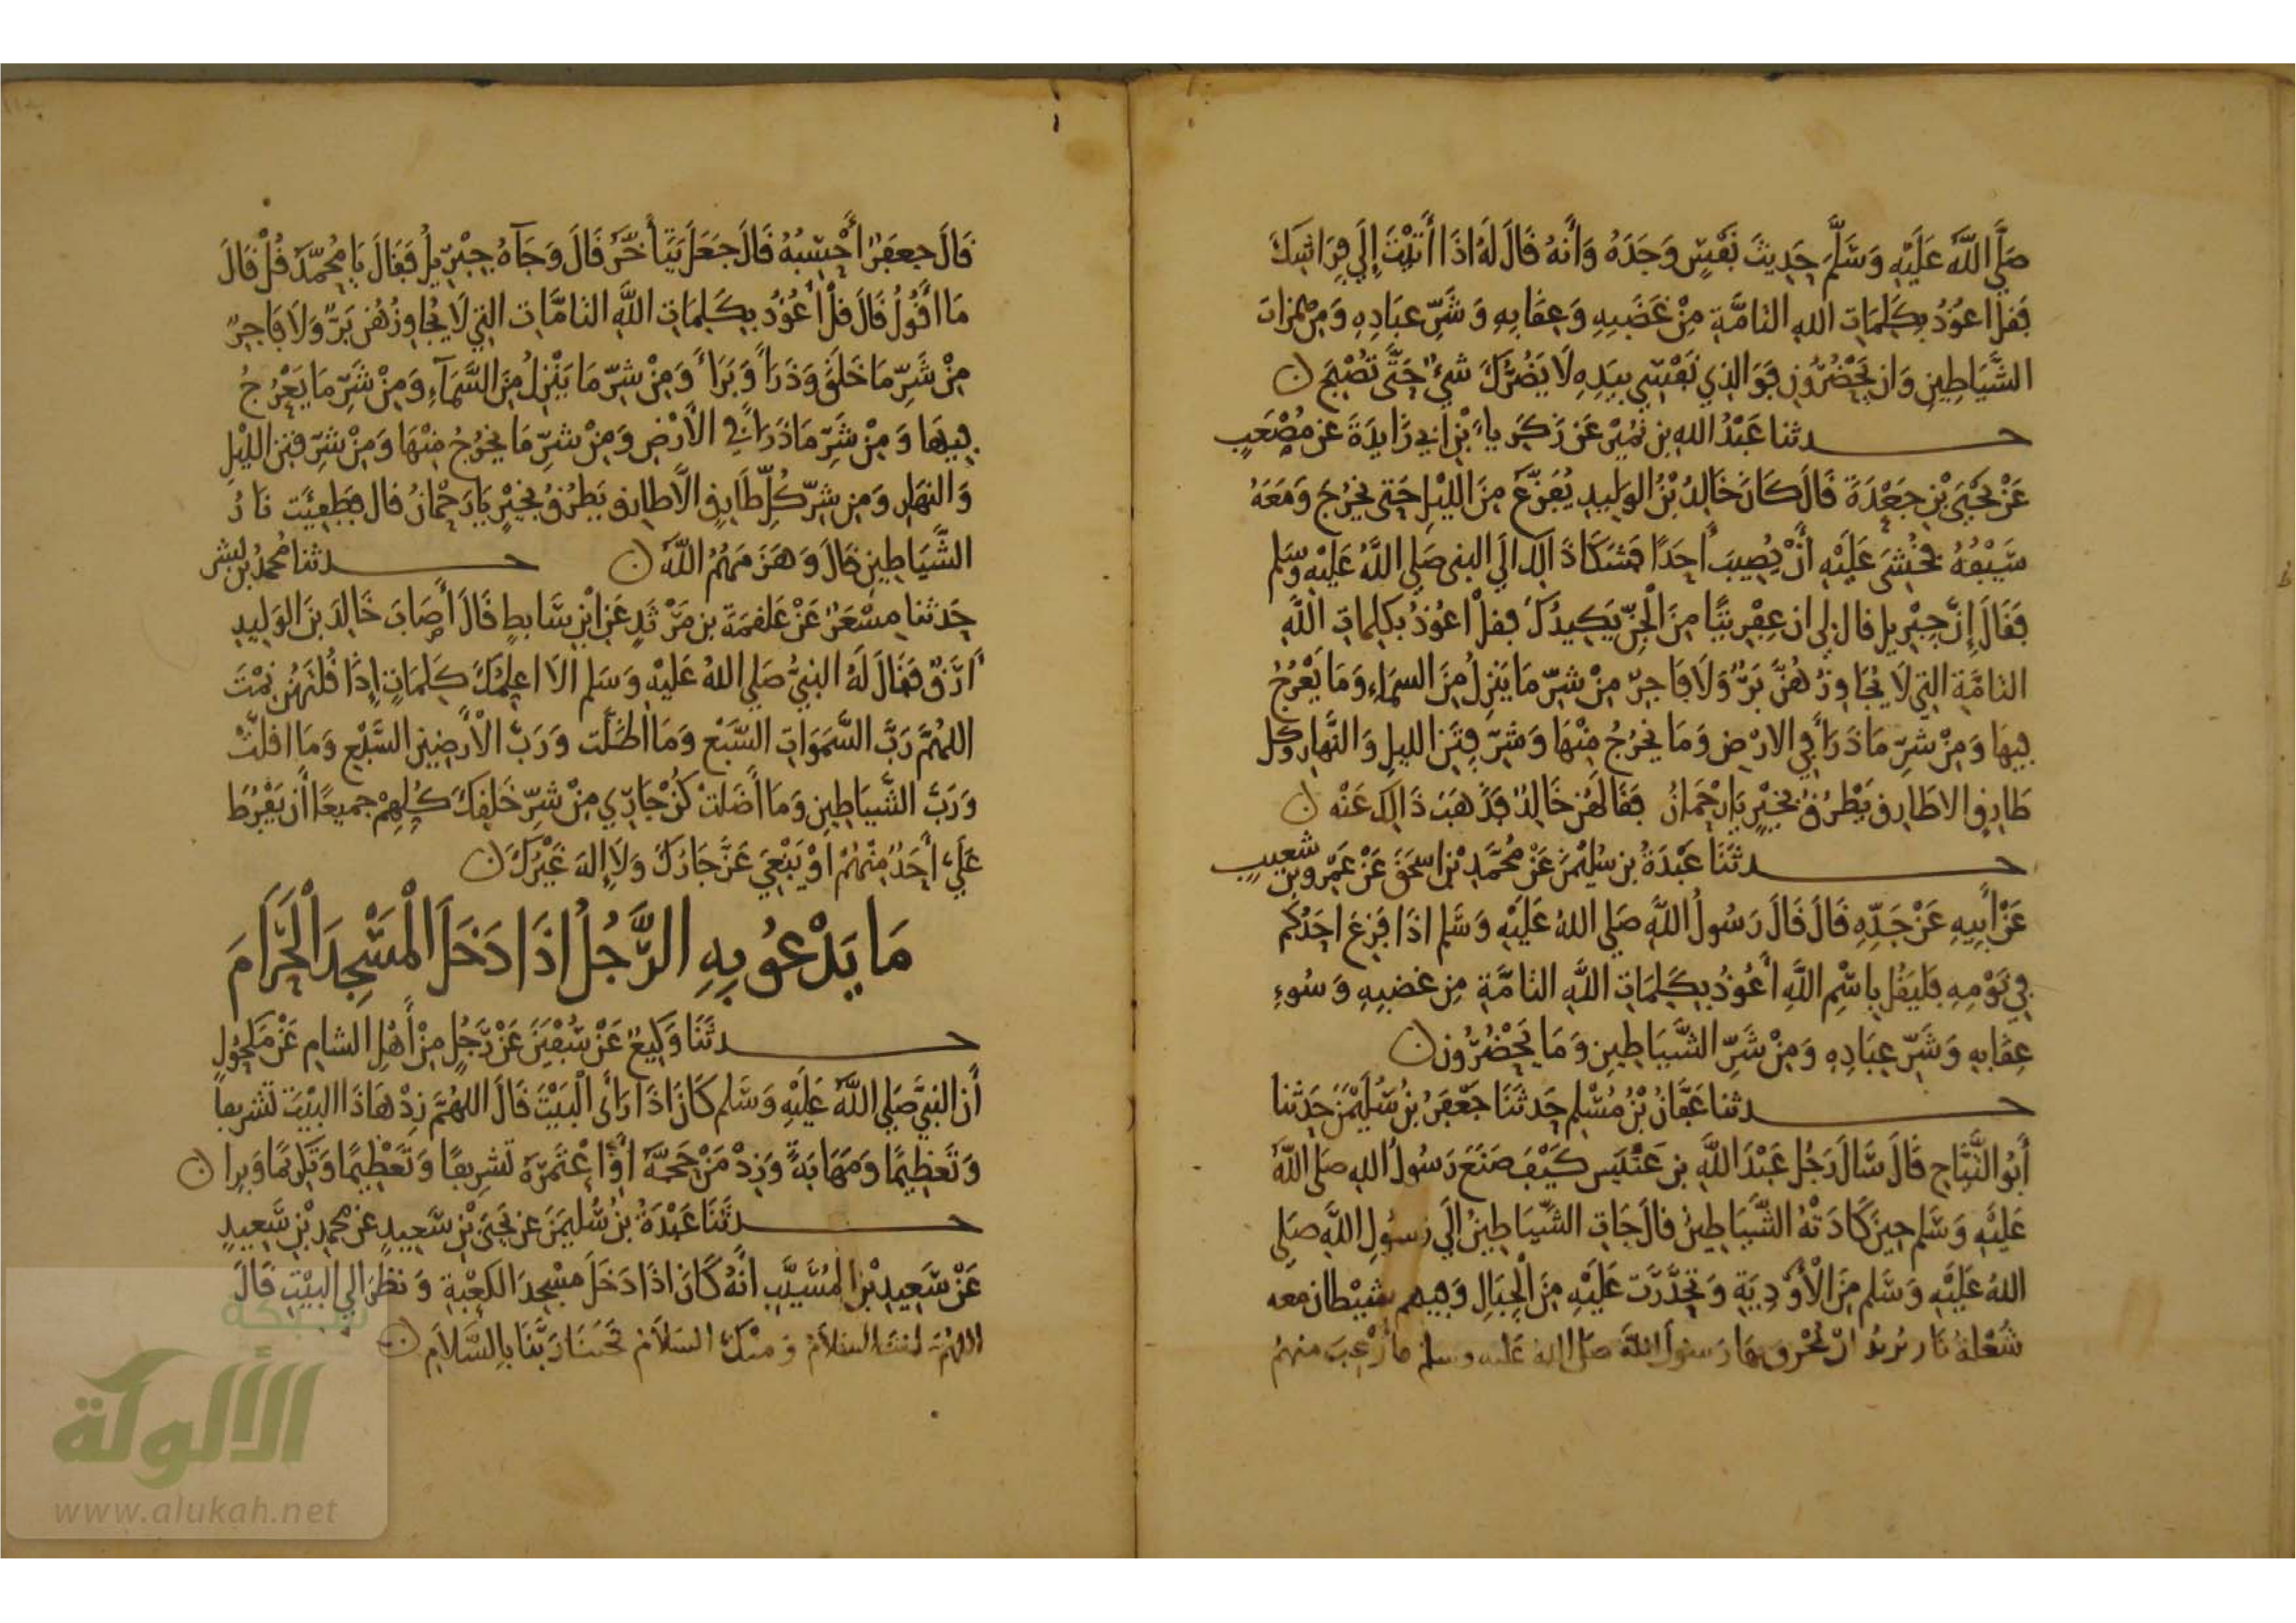 صَلَّى اللَّه عَلَيْهِ وَسَلَّمَ حَدِيثَ نَفْسٍ وَجَدَهُ وَأَنهُ قَالَ لَهُ اذَا أَتَيْتَ إِلَى فِرَاشِكَ
فقل اعوُذُ بِكَلِمَاتِ اللهِ التامَّةِ مِنْ غَضَبِهِ وَعِقَابِهِ وَشَرِّ عِبَادِهِ وَمِنْ همَزاتِ
الشَّيَاطِينِ وَان يَحْضُرُونِ فَوَالذِي نَفْسِي بِيَدِهِ لَا يَضُرُّكَ شَيْءٌ حَتَّى تُصْبِحَ
حدثنا عَبْدُ اللهِ بن نُمَيْرٍ عَن زَكَرِيَّاءَ بْنِ ابِي زَايِدَةَ عَن مُصْعَبٍ
عَنْ يَحْيَى بْنِ جَعْدَةَ قَالَ كَانَ خَالِدُ بْنُ الوَلِيدِ يُفَزَّعُ مِنَ الليْلِ حَتى يَخْرُجَ وَمَعَهُ
سَيْفُهُ فخُشِيَ عَلَيْهِ أَنْ يُصِيبَ أَحَدًا فشَكَا ذَالِكَ الَى النبي صَلى اللَّهُ عَلَيْهِ وَسَلم
فَقَالَ إِنَّ جِبْرِيلَ قال لِي ان عِفْرِيتًا مِنَ الْجِنِّ يَكِيدُكَ فقلْ اعُوذُ بكلماتِ اللَّهِ
التامَّةِ التِي لَا يُجَاوِزُهُنَّ بَرٌّ وَلَا فَاجِرٌ مِنْ شرِّ مَا يَنزِلُ مِنَ السمَاءِ وَمَا يَعْرُجُ
فِيهَا وَمِنْ شرِّ مَا ذَرَأَ فِي الارْضِ وَمَا يَخْرُجُ مِنْهَا وَشَرِّ فِتَنِ الليلِ وَالنَّهَارِ وكل
طَارِقٍ الا طَارِق يَطْرُقُ بخيْرٍ يَارَحْمَانُ فَقَالهُنَّ خَالِدٌ فَذَهَبَ ذَالِكَ عَنْه
حدثَنَا عَبْدَةُ بن سُلَيْمٰنَ عَنْ مُحَمَّدِ بْنِ اسحَقَ عَنْ عَمْرِو بْنِ شعيبٍ
عَنْ أَبِيهِ عَنْ جَدِّهِ قَالَ قَالَ رَسُولُ اللَّهِ صَلى اللهُ عَلَيْهِ وَسَلم اذَا فَزِعَ احَدُكُم
فِي نَوْمِهِ فَليَقُلْ بِاسْمِ اللَّهِ أَعُوذُ بِكَلِمَاتِ اللَّهِ التامَّةِ مِن غضبِهِ وَسُوءِ
عِقَابِهِ وَشَرِّ عِبَادِهِ وَمِنْ شَرِّ الشَّيَاطِينِ وَمَا يَحْضُرُون
حدثنا عَفَّانُ بْنُ مُسْلِم حَدثَنَا جَعْفَرُ بْنُ سُلَيْمٰنَ حَدثنا
أَبُو التَّيَّاحِ قَالَ سَالَ رَجُل عَبْدَ اللَّهِ بن خَنْبَس كَيْفَ صَنَعَ رَسُولُ اللهِ صَلى اللَّهُ
عَلَيْهِ وَسَلم حِينَ كَادَتْهُ الشَّيَاطِينُ قالَ جَاتِ الشَّيَاطِينُ إِلَى رَسُولِ اللَّهِ صَلى
اللهُ عَلَيْهِ وَسَلم مِنَ الْأَوْدِيَةِ وَتَحَدَّرَت عَلَيْهِ مِنَ الْجِبَالِ وَفِيهِم شَيْطان معه
شُعْلَةُ نَار يُرِيدُ انْ يُحْرِقَ بهَا رَسُولَ اللَّهِ صَلى اللهُ عَليه وسلم فأُرْعِبَ منهُمْ
قَالَ جعفَرٌ أَحْسِبُهُ قَالَ جَعَلَ يَتَأَخَّرُ قَالَ وَجَآهُ جِبْرِيلُ فَقَالَ يَا مُحَمَّدُ قُلْ قَالَ
مَا اقُولُ قَالَ قلْ أَعُوُذُ بِكَلِمَاتِ اللَّهِ التامَّاتِ التِي لَا يُجاوِزُهُن بَرٌّ وَلَا فَاجِرٌ
مِنْ شَرِّ مَا خَلَقَ وَذَرَأَ وَبَرَأَ وَمِنْ شرِّ مَا يَنْزِلُ مِنَ السَّمَآءِ وَمِنْ شَرِّ مَا يَعْرُجُ
فِيهَا وَمِنْ شَرِّ مَا ذَرَأَ فِي الْأَرْضِ وَمِنْ شرِّ مَا يَخرُجُ مِنْهَا وَمِنْ شَرِّ فِتَنِ الليْلِ
وَالنهَارِ وَمِن شرِّ كُلِّ طَارِقٍ الَّا طارِق يَطْرُقُ بخَيْرٍ يَارَحْمانُ قال فَطَفِئَت نَارُ
الشَّيَاطِينِ قَالَ وَهَزَمَهُمُ اللَّهُ حدثنا مُحمدُ بن بشر
حَدثنا مِسْعَرٌ عَنْ عَلقمَةَ بن مَرْثَدٍ عَنِ ابْنِ سَابطٍ قَالَ أَصَابَ خَالِدَ بنَ الوَلِيدِ
أَرَقٌ فَقَالَ لَهُ النبِيُّ صَلى اللهُ عَلَيْهِ وَسَلم الَا اعَلِّمُكَ كَلِمَاتٍ إِذَا قُلْتَهُنَّ نِمْتَ
اللهُمَّ رَبَّ السَّمَوَاتِ السَّبْعِ وَمَا اظَلَّت وَرَبَّ الْأَرَضِينَ السَّبْعِ وَمَا اقَلَّتْ
وَرَبَّ الشَّيَاطِينِ وَمَا أَضَلتْ كُنْ جَارِي مِنْ شرِّ خَلقِكَ كُلِّهِمْ جميعًا أَن يَفْرُطَ
عَلَيَّ أَحَدٌ مِنْهُمْ اوْ يَبْغِيَ عَزَّ جَارُكَ وَلَا إِلهَ غَيْرُكَ
مَا يَدْعُو بِهِ الرَّجُلُ اذَا دَخَلَ الْمَسْجِدَ الْحَرَامَ
حدثَنَا وَكِيعٌ عَنْ سُفْيَنَ عَنْ رَّجُلٍ مِنْ أَهْلِ الشامِ عَنْ مَكحُولٍ
أَن النبيَّ صَلى اللَّهُ عَلَيْهِ وَسَلم كَانَ اذَا رَأَى الْبَيْتَ قَالَ اللهُمَّ زِدْ هَاذَا البَيْتَ تشريفاً
وَتَعْظِيمًا وَمَهَابَةً وَزِدْ مَنْ حَجَّهُ أَوِ اعْتَمَرَهُ تَشرِيفًا وَتَعْظِيمًا وَتَكرِيمًا وَبِرا
حدثَنَا عَبْدَةُ بنُ سُليمَنَ عن يَحْيَى بْنِ سَعِيدٍ عن محمدِ بْنِ سَعِيدٍ
عَنْ سَعِيدِ بْنِ الْمُسَيَّبِ أَنَّهُ كَانَ اذَا دَخَلَ مسْجِدَ الكعْبَةِ وَنظَرَ الى البيْتِ قَالَ
اللهُمَّ أنتَ السَّلَامُ وَمنْكَ السَّلَامُ فحَيِّنَا رَبَّنَا بِالسَّلَامِ
شبكة
الألوكة
www.alukah.net